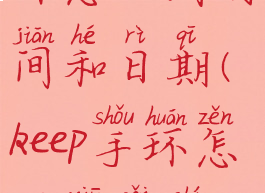 jiān hé rì qī
间和日期(
shǒu huán zěn
keep手环怎